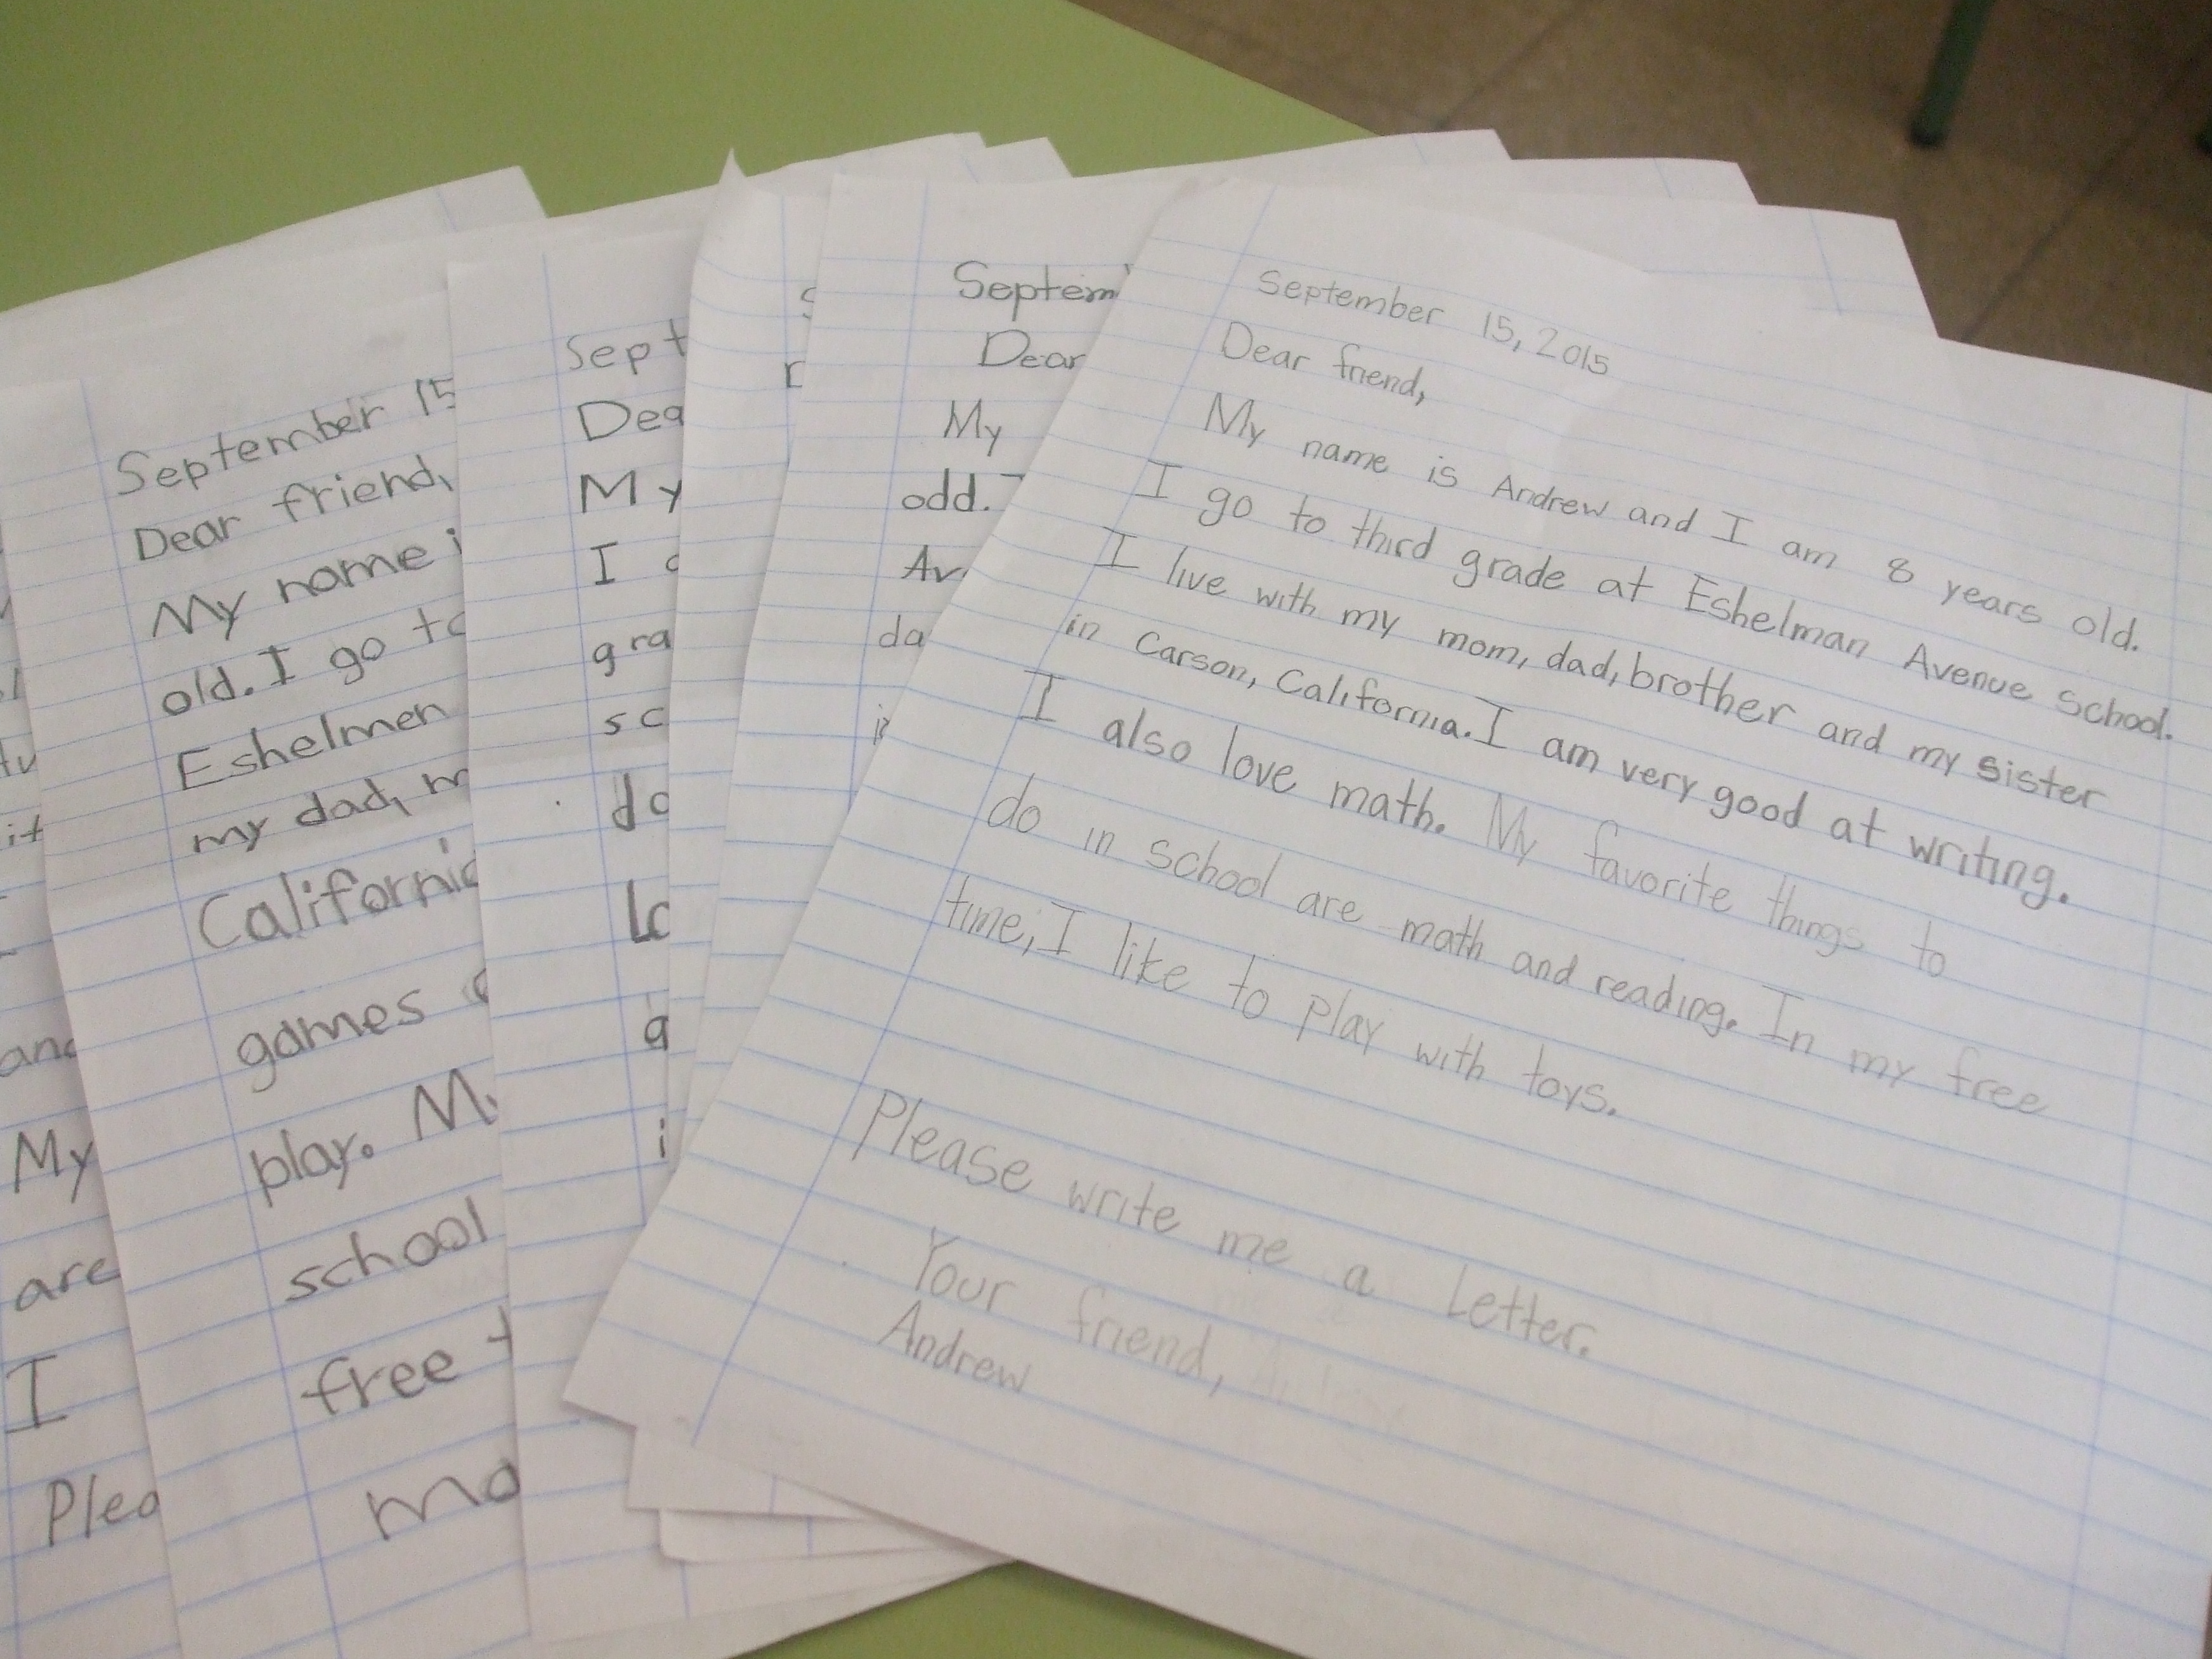 September 15, 2015
Dear friend,
My name is Andrew and I am 8 years old.
I go to third grade at Eshelman Avenue School.
I live with my mom, dad, brother and my sister
in Carson, California. I am very good at writing.
I also love math. My favorite things to
do in school are math and reading. In my free
time, I like to play with toys.
Please write me a Letter.
Your friend,
Andrew
Septem
Dear
My
odd.
Av
da
Sept
Dea
My
I
gra
sc
do
lo
a
i
September 15
Dear friend,
My name i
old. I go to
Eshelmen
my dad, m
California
games
play. M
school
free t
mo
it
and
My
are
I
Plea